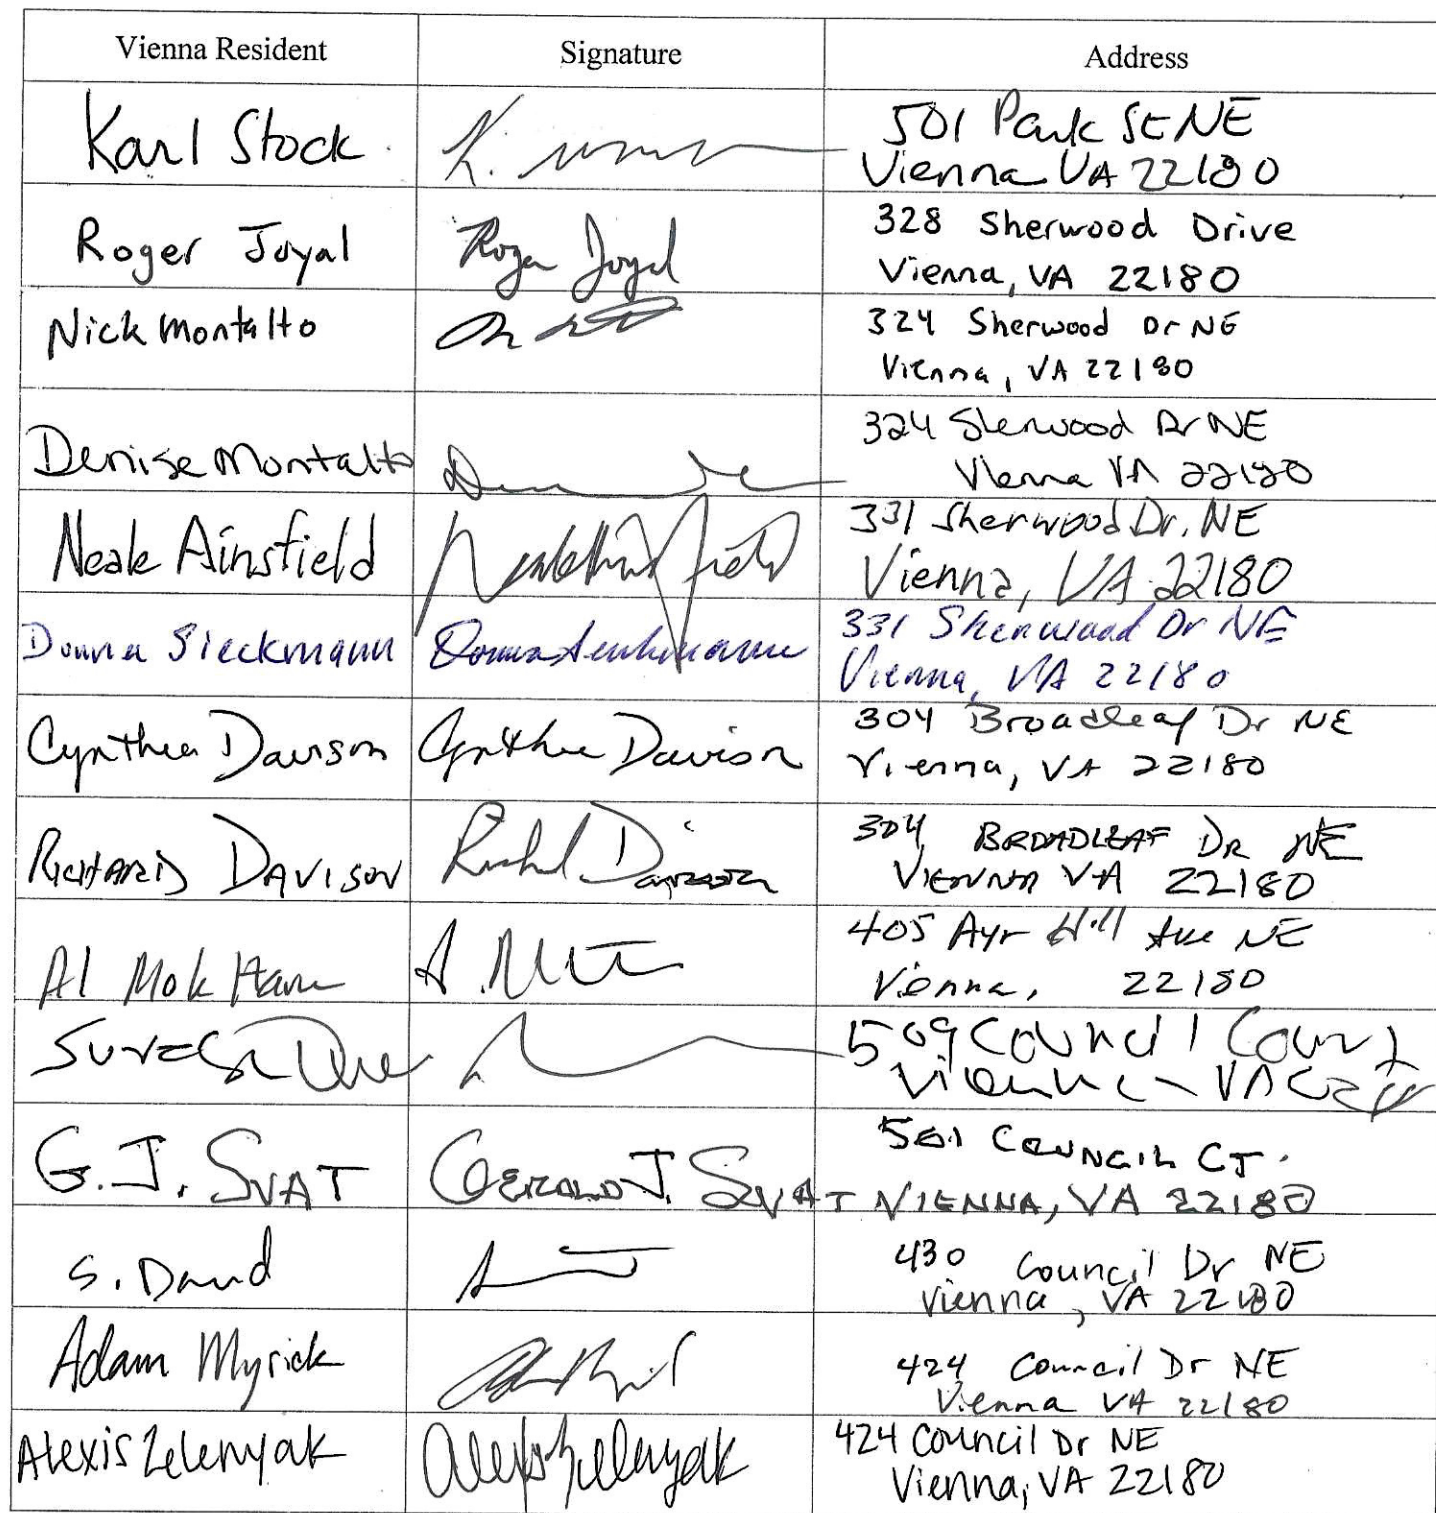 Vienna Resident Signature Address
Karl Stock K. 501 Park St NE
Vienna VA 22180
Roger Joyal Roger Joyal 328 Sherwood Drive
Vienna, VA 22180
Nick Montalto 324 Sherwood Dr NE
Vienna, VA 22180
Denise Montalto 324 Sherwood Dr NE
Vienna VA 22180
Neale Ainsfield 331 Sherwood Dr. NE
Vienna, VA 22180
Donna Sieckmann Donna Sieckmann 331 Sherwood Dr NE
Vienna, VA 22180
Cynthia Davison Cynthia Davison 304 Broadleaf Dr NE
Vienna, VA 22180
RICHARD DAVISON Richard Davison 304 BROADLEAF DR NE
VIENNA VA 22180
Al Mok 405 Ayr Hill Ave NE
Vienna, 22180
509 Council Court
Vienna VA
G.J. SVAT GERALD J. SVAT 501 COUNCIL CT.
VIENNA, VA 22180
S. David 430 Council Dr NE
Vienna, VA 22180
Adam Myrick 424 Council Dr NE
Vienna VA 22180
Alexis Zelenyak Alexis Zelenyak 424 Council Dr NE
Vienna, VA 22180